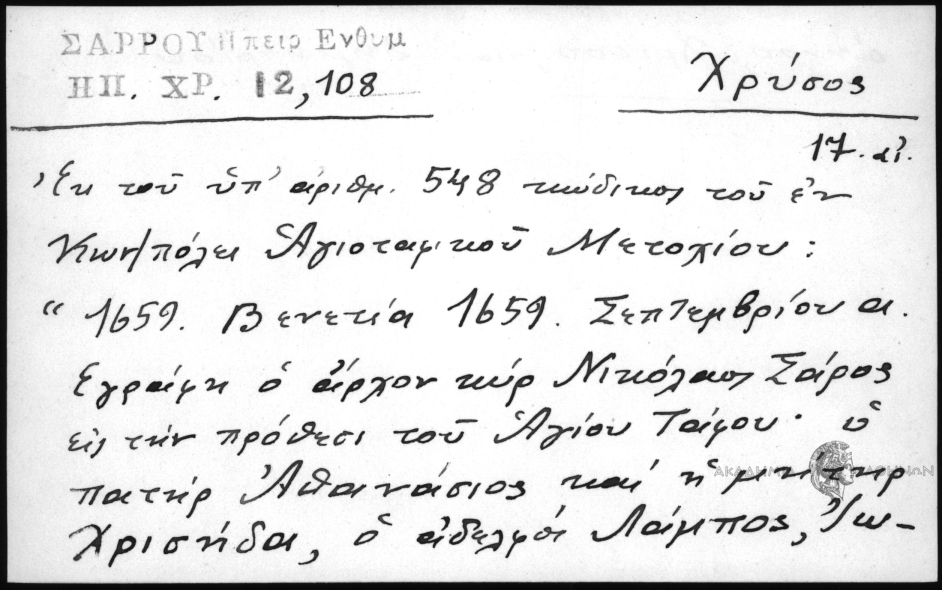 ΣΑΡΡΟΥ Ηπειρ Ενθυμ
ΗΠ. ΧΡ. 12, 108
Χρύσος
17. αἰ.
Ἐκ τοῦ ὑπ' ἀριθμ. 548 κώδικος τοῦ ἐν
Κων/πόλει Ἁγιοταφικοῦ Μετοχίου :
“ 1659. Βενετία 1659. Σεπτεμβρίου α.
Εγράφη ὁ ἄρχον κύρ Νικόλαος Σάρος
εἰς τήν πρόθεσι τοῦ Ἁγίου Τάφου· ὁ
πατήρ Ἀθανάσιος καί ἡ μήτηρ
Χρισηίδα, ὁ ἀδελφός Λάμπος, Ἰω-
ΑΚΑΔΗΜΙΑ ΑΘΗΝΩΝ